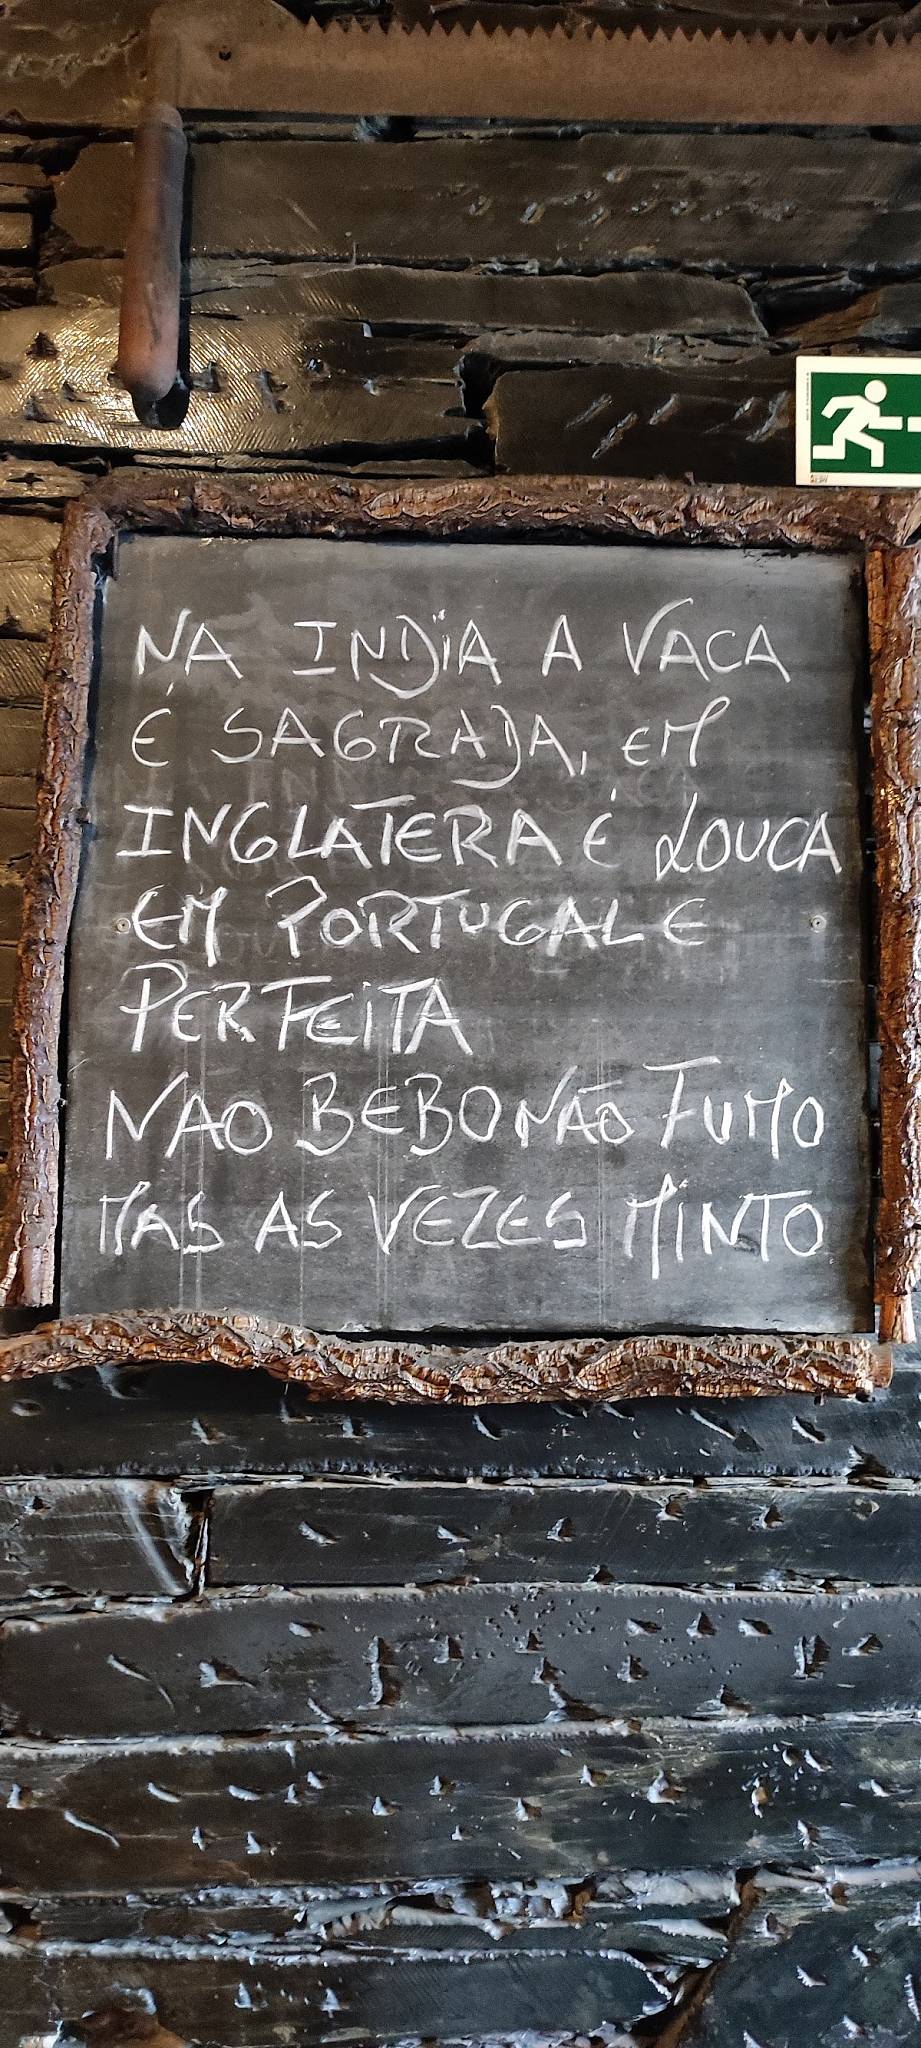 NA INDIA A VACA
É SAGRADA, EM
INGLATERA É LOUCA
EM PORTUGAL E
PERFEITA
NAO BEBO NÃO FUMO
MAS AS VEZES MINTO